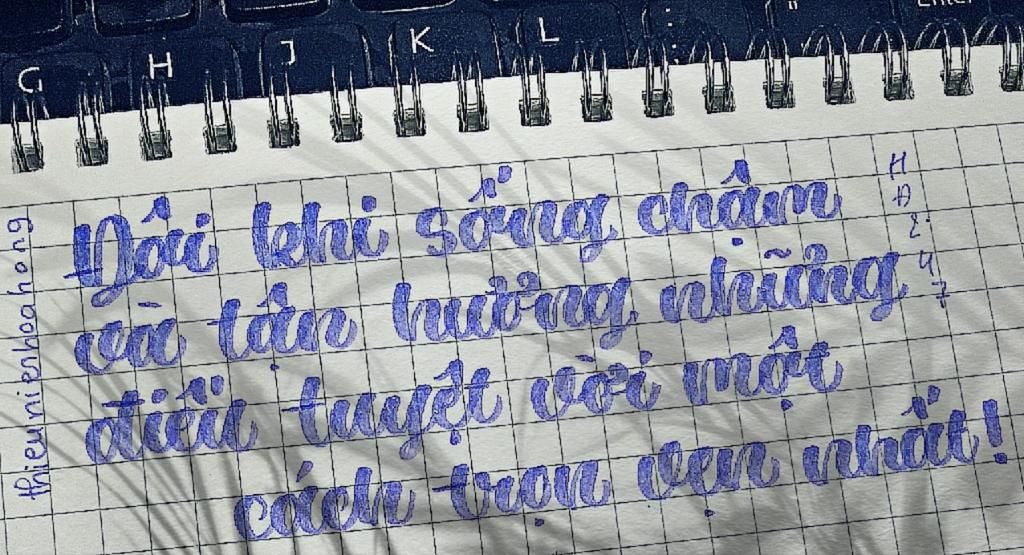 G H J K L ; " Enter
Đôi khi sống chậm
và tận hưởng những
điều tuyệt vời một
cách trọn vẹn nhất!
thieunienhoahong
H
A
2
4
7